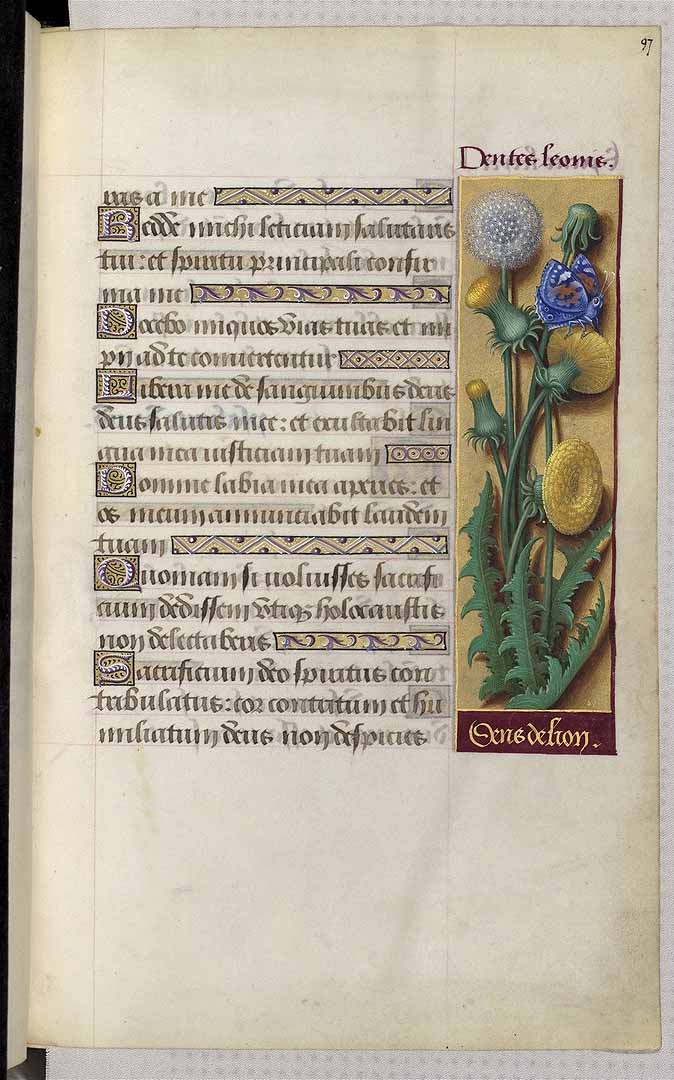 97
Dentes leonis.
ras a me
Redde michi leticiam salutaris
tui: et spiritu principali confir
ma me
Docebo iniquos vias tuas et im
pij ad te conuertentur
Libera me de sanguinibus deus
deus salutis mee: et exultabit lin
gua mea iusticiam tuam
Domine labia mea aperies: et
os meum annunciabit laudem
tuam
Quoniam si uoluisses sacrifi
cium dedissem vtiqȝ holocaustis
non delectaberis
Sacrificium deo spiritus con
tribulatus: cor contritum et hu
miliatum deus non despicies
Dens de lion.